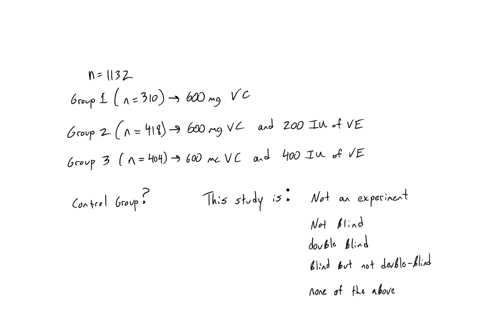 n=1132
Group 1 (n=310) → 600 mg VC
Group 2 (n=418) → 600 mg VC and 200 IU of VE
Group 3 (n=404) → 600 mc VC and 400 IU of VE
Control Group? This study is: Not an experiment
Not blind
double blind
blind but not double-blind
none of the above